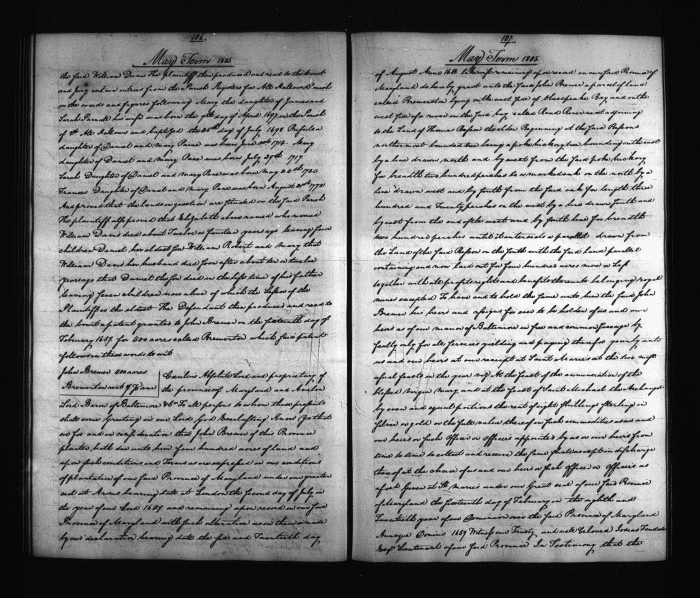 186
May Term 1805
the said William Davis The plaintiff then produced and read to the Court
and Jury and an entries from the Parish Register for All Hallows Parish
in the words and figures following Mary the daughter of James and
Sarah his wife was born the 9th day of April 1697 in the Parish
of St All Hallows and baptized the day of July 1698
daughter of Daniel and Mary Pearce was born June 1713 Mary
daughter of Daniel and Mary Pearce was born July 27th 1717
Sarah Daughter of Daniel and Mary Pearce was born May 22nd 1720
Frances Daughter of Daniel and Mary Pearce was born August
And proved that the lands in question are situated in the said Parish
The plaintiff also proved that Elizabeth above named who married
William Davis died about Twelve or fourteen years ago leaving four
children Daniel her eldest son William Robert and Mary that
William Davis her husband died soon after about ten or twelve
years ago that Daniel the son died in the life time of his father
leaving four children now alive of which the lessor of the
Plaintiff is the eldest The Defendant then produced and read to
the Court a patent granted to John Brewer on the fifteenth day of
February 1659 for 400 acres called Brewerton which said patent
follows in these words to wit
John Brewer 400 acres
Brewerton
Cecilius Absolute Lord and proprietary of
the province of Maryland and Avalon
Lord Baron of Baltimore &c To all persons to whom these presents
shall come Greeting in our Lord God Everlasting Know Ye that
we for and in consideration that John Brewer of this Province
planter hath due unto him four hundred acres of land and
upon such conditions and Terms as are expressed in our conditions
of plantation of our said Province of Maryland under our greater
seal at Arms bearing date at London the second day of July in
the year of our Lord 1649 and remaining upon record in our said
Province of Maryland with such alteration as in them is made
by our declaration bearing date the six and Twentieth day
187
May Term 1805
of August Anno 1651 and remaining upon record in our said Province of
Maryland do hereby grant unto the said John Brewer a parcel of land
called Brewerton lying on the west side of Chesapeake Bay and on the
west side of a river in the said bay called Road River next adjoining
to the Land of Thomas Besson the elder Beginning at the said Bessons
northernmost bounded tree being a pokehiccory tree bounding on the east
by a line drawn north and by west from the said pokehiccory
for breadth two hundred perches to a marked oak on the north by a
line drawn west and by south from the said oak for length three
hundred and Twenty perches on the west by a line drawn south and
by east from the end of the west and by south line for breadth
two hundred perches until it intersects a parallel drawn from
the Land of the said Besson on the south with the said land parallel
containing and now laid out for four hundred acres more or less
together with all profits rights and benefits thereunto belonging royal
mines excepted To have and to hold the same unto him the said John
Brewer his heirs and assigns for ever to be holden of us and our
heirs as of our manor of Baltimore in free and common soccage by
fealty only for all services yielding and paying therefor yearly unto
us and our heirs at our receipt at Saint Maries at the two most
usual feasts in the year viz At the feast of the annunciation of the
blessed virgin Mary and at the feast of Saint Michael the Archangel
by even and equal portions the rent of eight Shillings sterling in
silver or gold or the full value thereof in such commodities as we and
our heirs or such Officer or Officers appointed by us or our heirs from
time to time to collect and receive the same shall accept in discharge
thereof at the choice of us and our heirs or such Officer or Officers as
aforesaid Given at St Maries under our Great seal of our said Province
of Maryland the fifteenth day of February in the eighth and
Twentieth year of our Dominion over the said Province of Maryland
Annoque Domini 1659 Witness our Trusty and well beloved Josias Fendall
Esqr Lieutenant of our said Province In Testimony that the